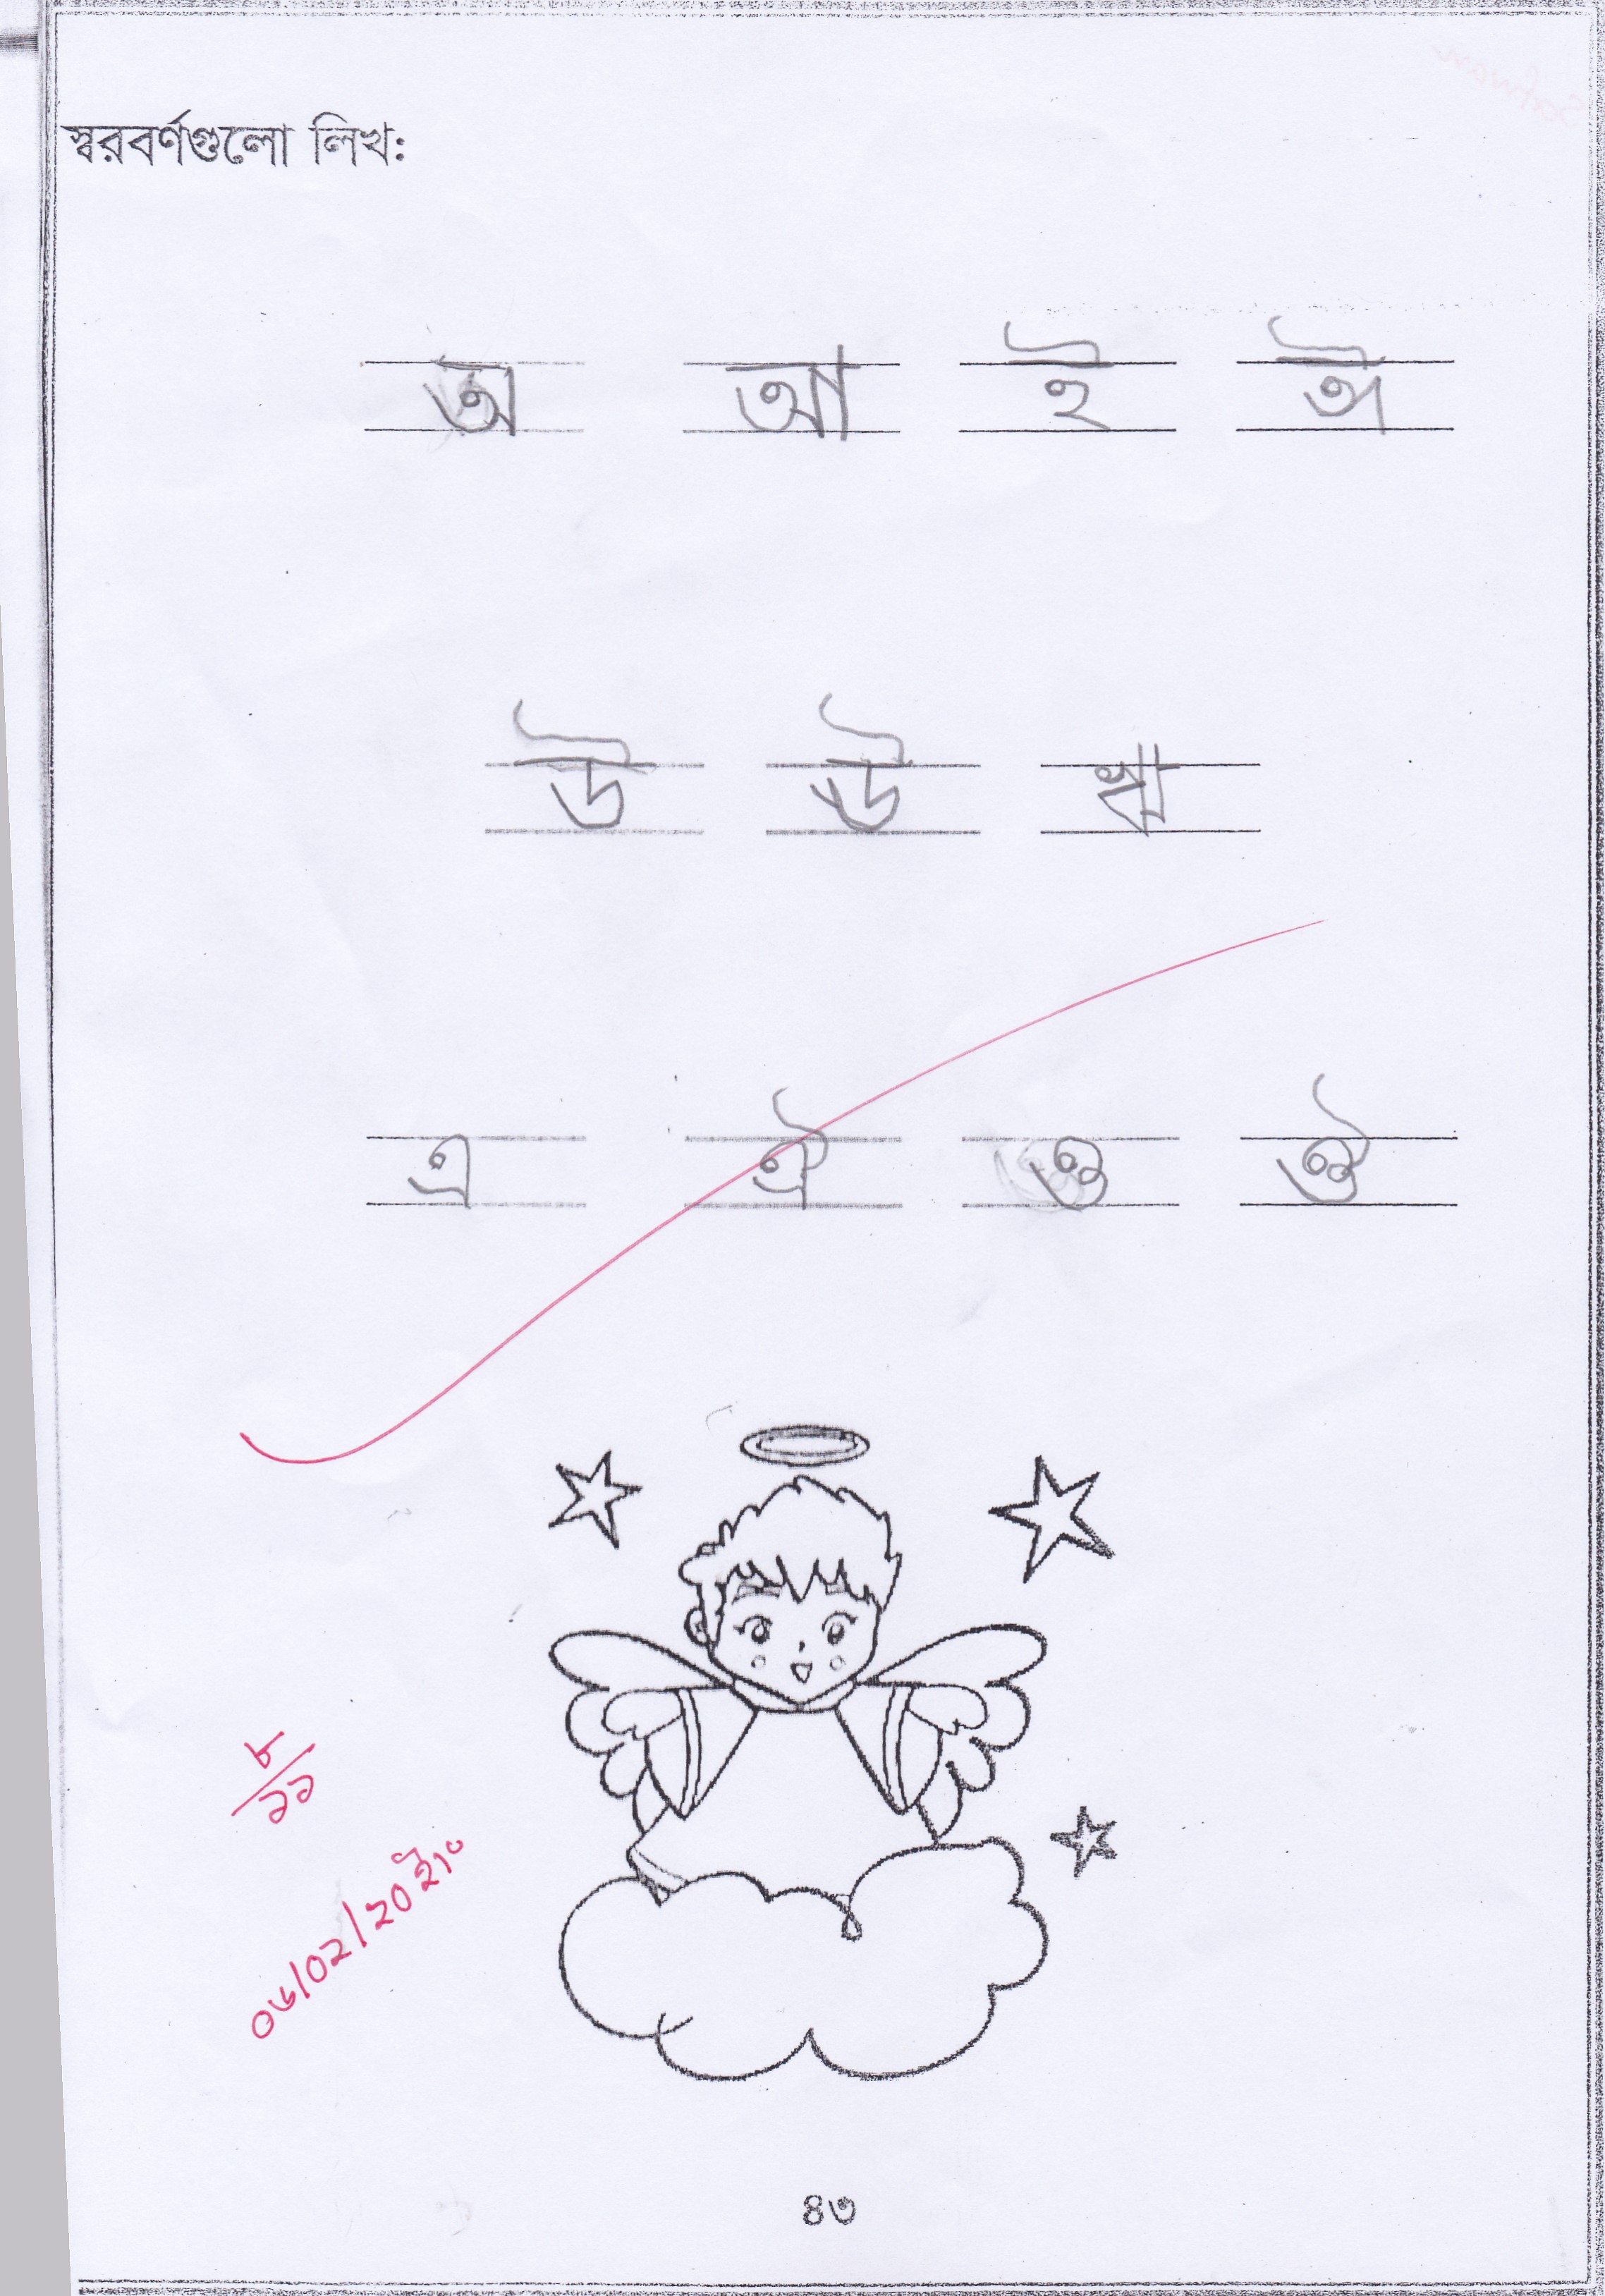 স্বরবর্ণগুলো লিখ:
অ আ ই ঈ
উ ঊ ঋ
এ ঐ ও ঔ
৮/১১
০৬/০২/২০ইং
৪৩